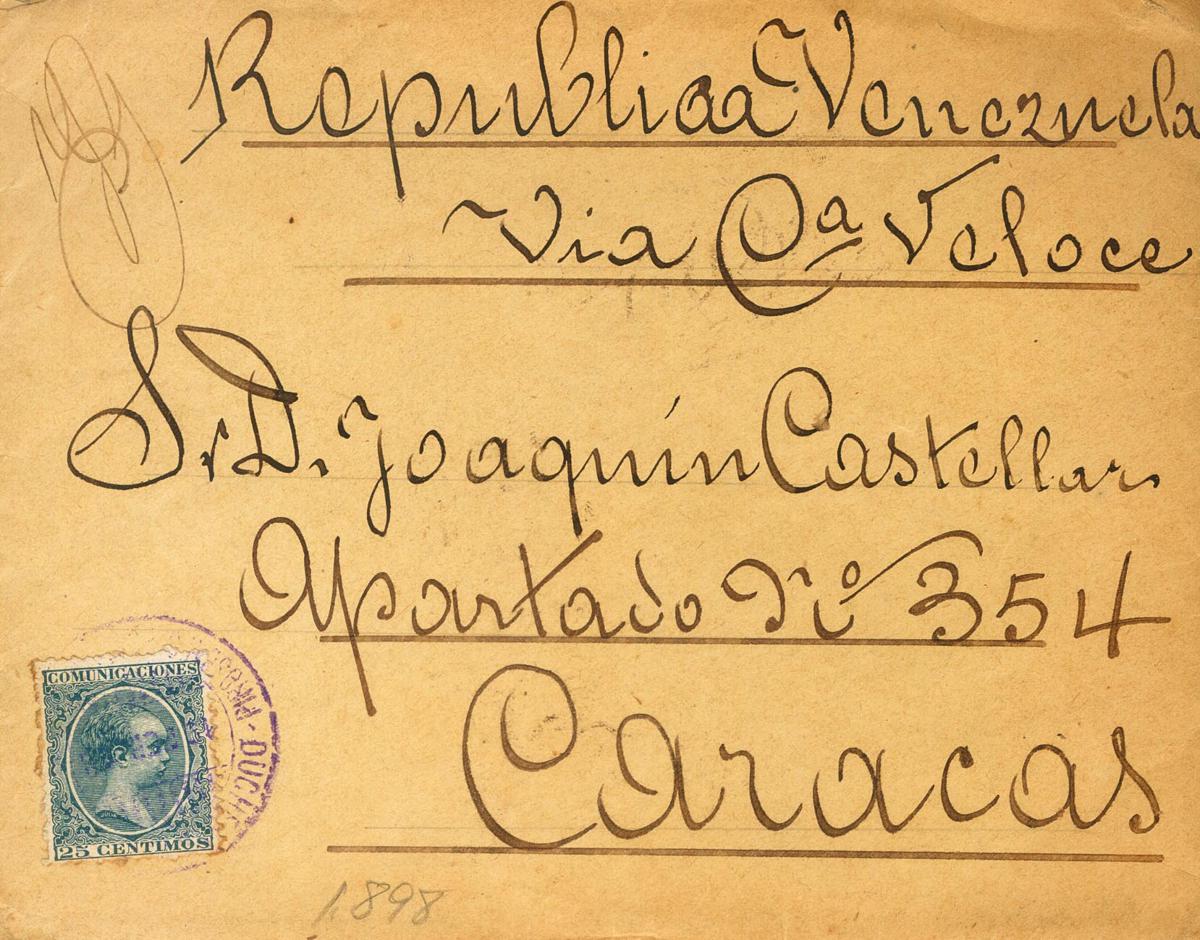 Republica Venezuela
Via Cª Veloce
Sr D. Joaquín Castellar
Apartado Nº 354
Caracas
COMUNICACIONES
25 CENTIMOS
1898